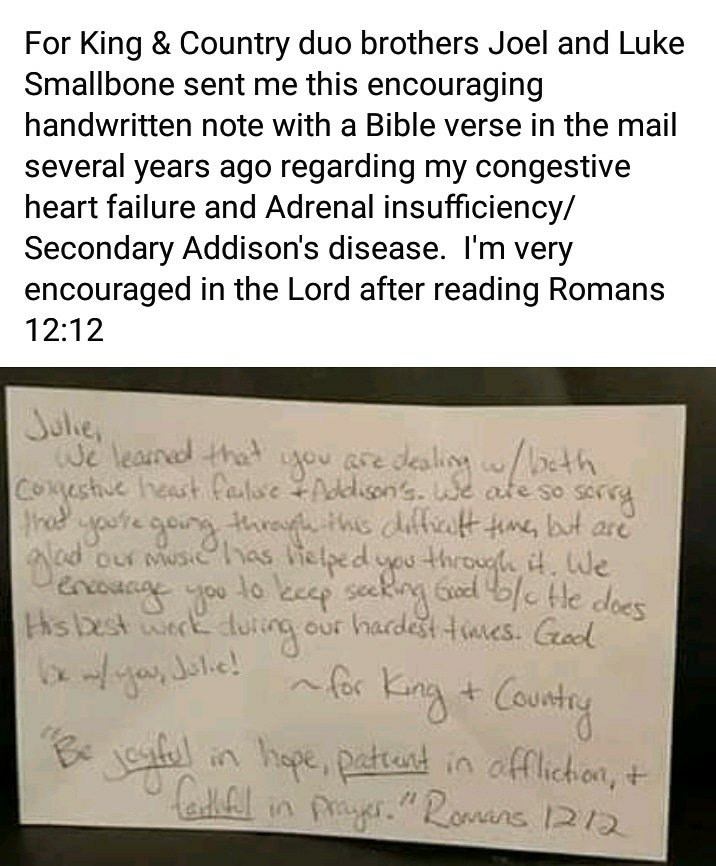 For King & Country duo brothers Joel and Luke
Smallbone sent me this encouraging
handwritten note with a Bible verse in the mail
several years ago regarding my congestive
heart failure and Adrenal insufficiency/
Secondary Addison's disease.  I'm very
encouraged in the Lord after reading Romans
12:12
Julie,
We learned that you are dealing w/ both
Congestive heart failure + Addison's. We are so sorry
that you're going through this difficult time, but are
glad our music has helped you through it. We
encourage you to keep seeking God b/c He does
His best work during our hardest times. God
be w/ you, Julie!
~for King + Country
"Be joyful in hope, patient in affliction, +
faithful in prayer." Romans 12:12